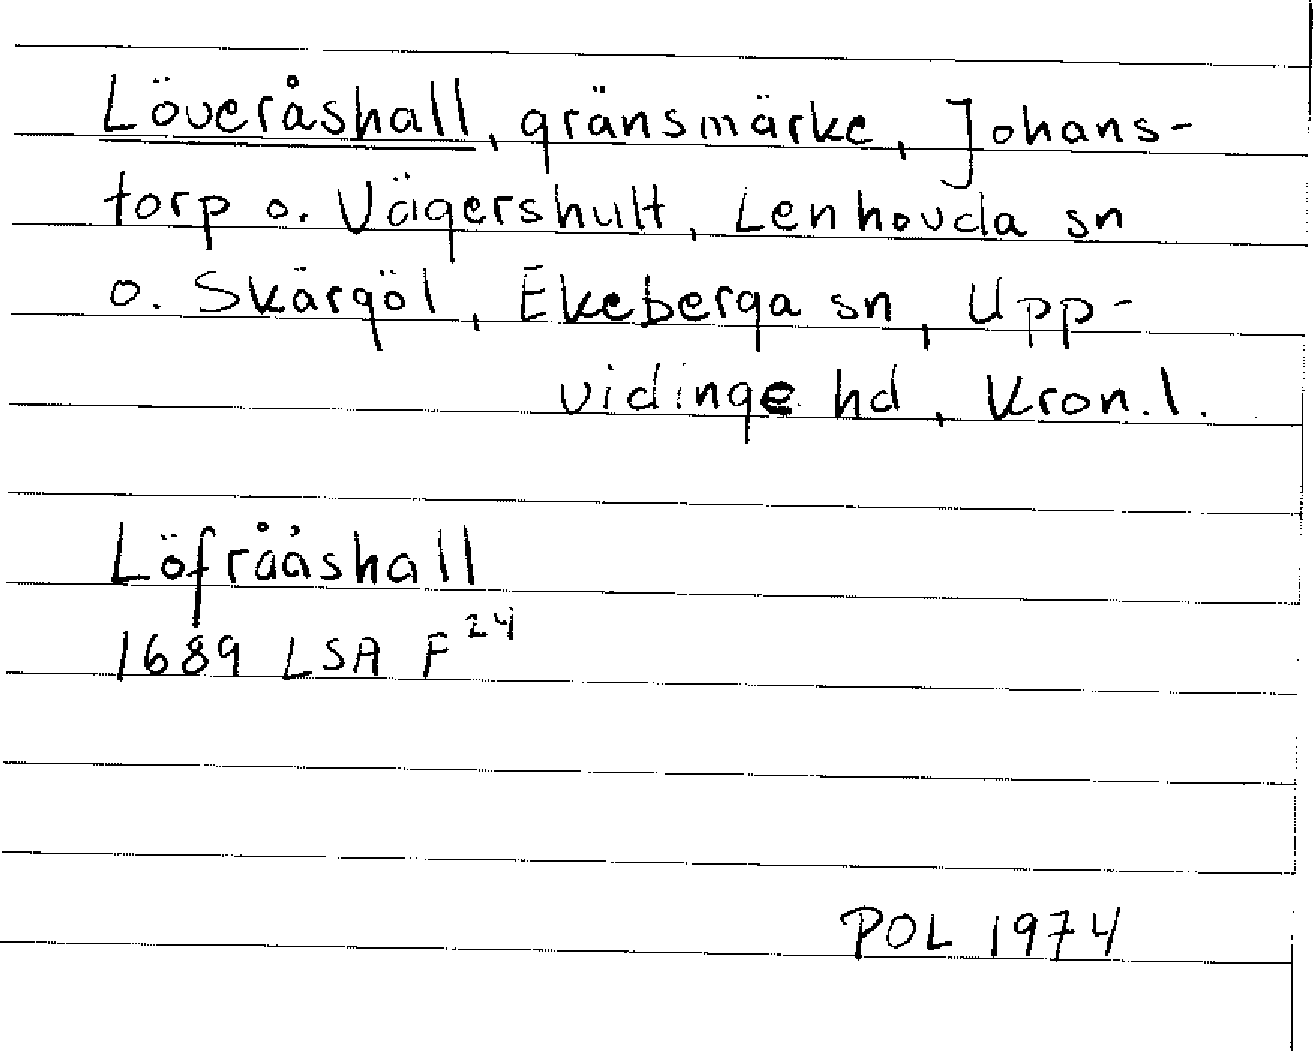 Löveråshall, gränsmärke, Johans-
torp o. Vägershult, Lenhovda sn
o. Skärgöl, Ekeberga sn, Upp-
vidinge hd, Kron. l.
Löfrååshall
1689 LSA F 24
POL 1974